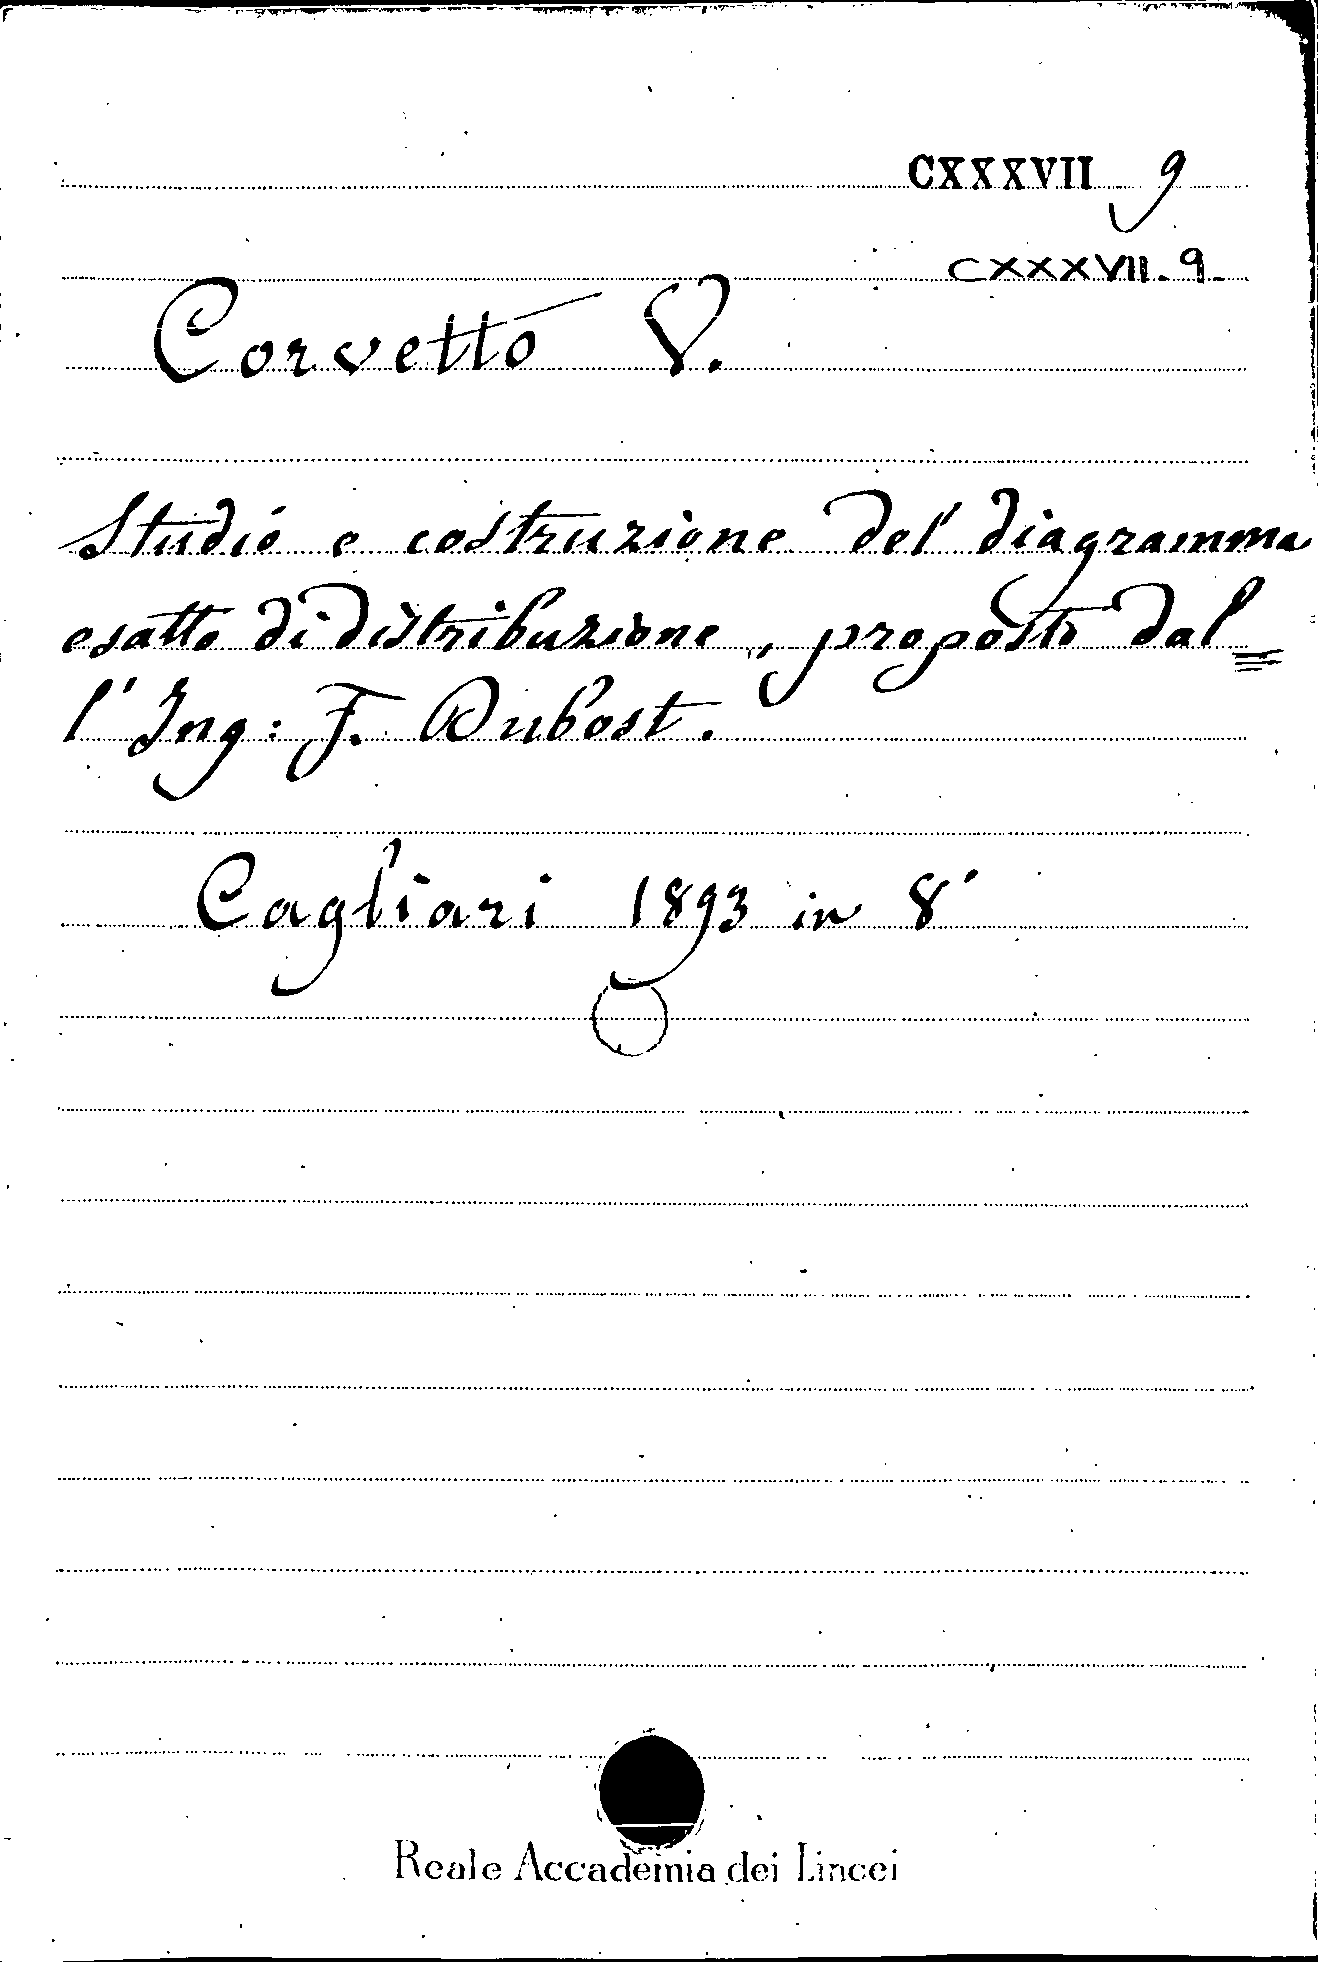 CXXXVII 9
CXXXVII. 9.
Corvetto V.
Studio e costruzione del diagramma
esatto di distribuzione, proposto dal=
l'Ing: F. Dubost.
Cagliari 1893 in 8°
Reale Accademia dei Lincei